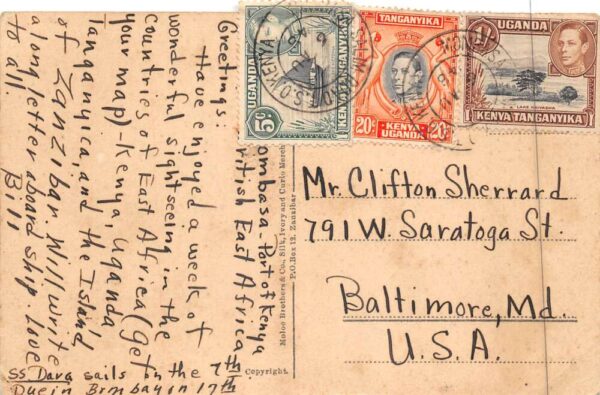 Mombasa - Port of Kenya
British East Africa
Greetings:
Have enjoyed a week of
wonderful sightseeing in the
Countries of East Africa (get
your map) - Kenya, Uganda
Tanganyica, and the Island
of Zanzibar. Will write
a long letter aboard ship. Love
to all.
Bill
SS Dara sails on the 7th
Due in Bombay on 17th
Moloo Brothers & Co., Silk, Ivory and Curio Merch
P.O. Box 12, Zanzibar
Copyright.
5C
KENYA TANGANYIKA
UGANDA
TANGANYIKA
20C
20C
KENYA-
UGANDA
UGANDA
1/-
LAKE NAIVASHA
KENYA TANGANYIKA
MOMBASA
KENYA
Mr. Clifton Sherrard
791 W. Saratoga St.
Baltimore, Md.
U.S.A.